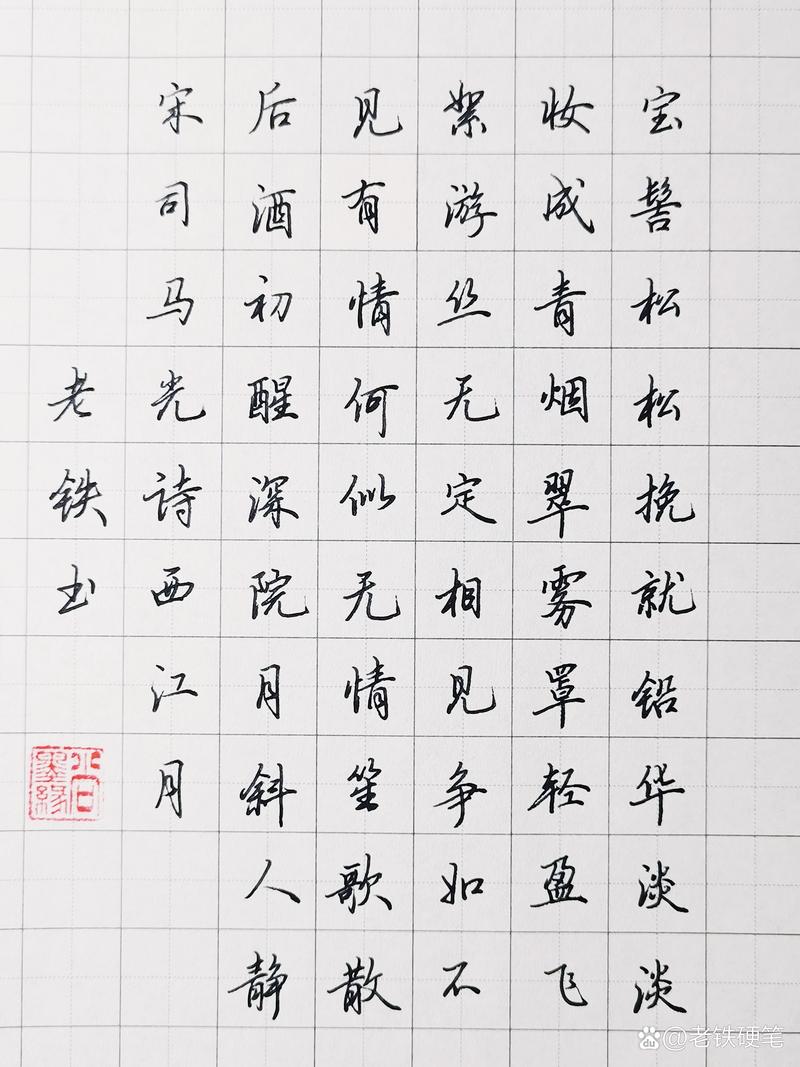 宝髻松松挽就铅华淡淡
妆成青烟翠雾罩轻盈飞
絮游丝无定相见争如不
见有情何似无情笙歌散
后酒初醒深院月斜人静
宋司马光诗西江月
老铁书
墨缘
@老铁硬笔